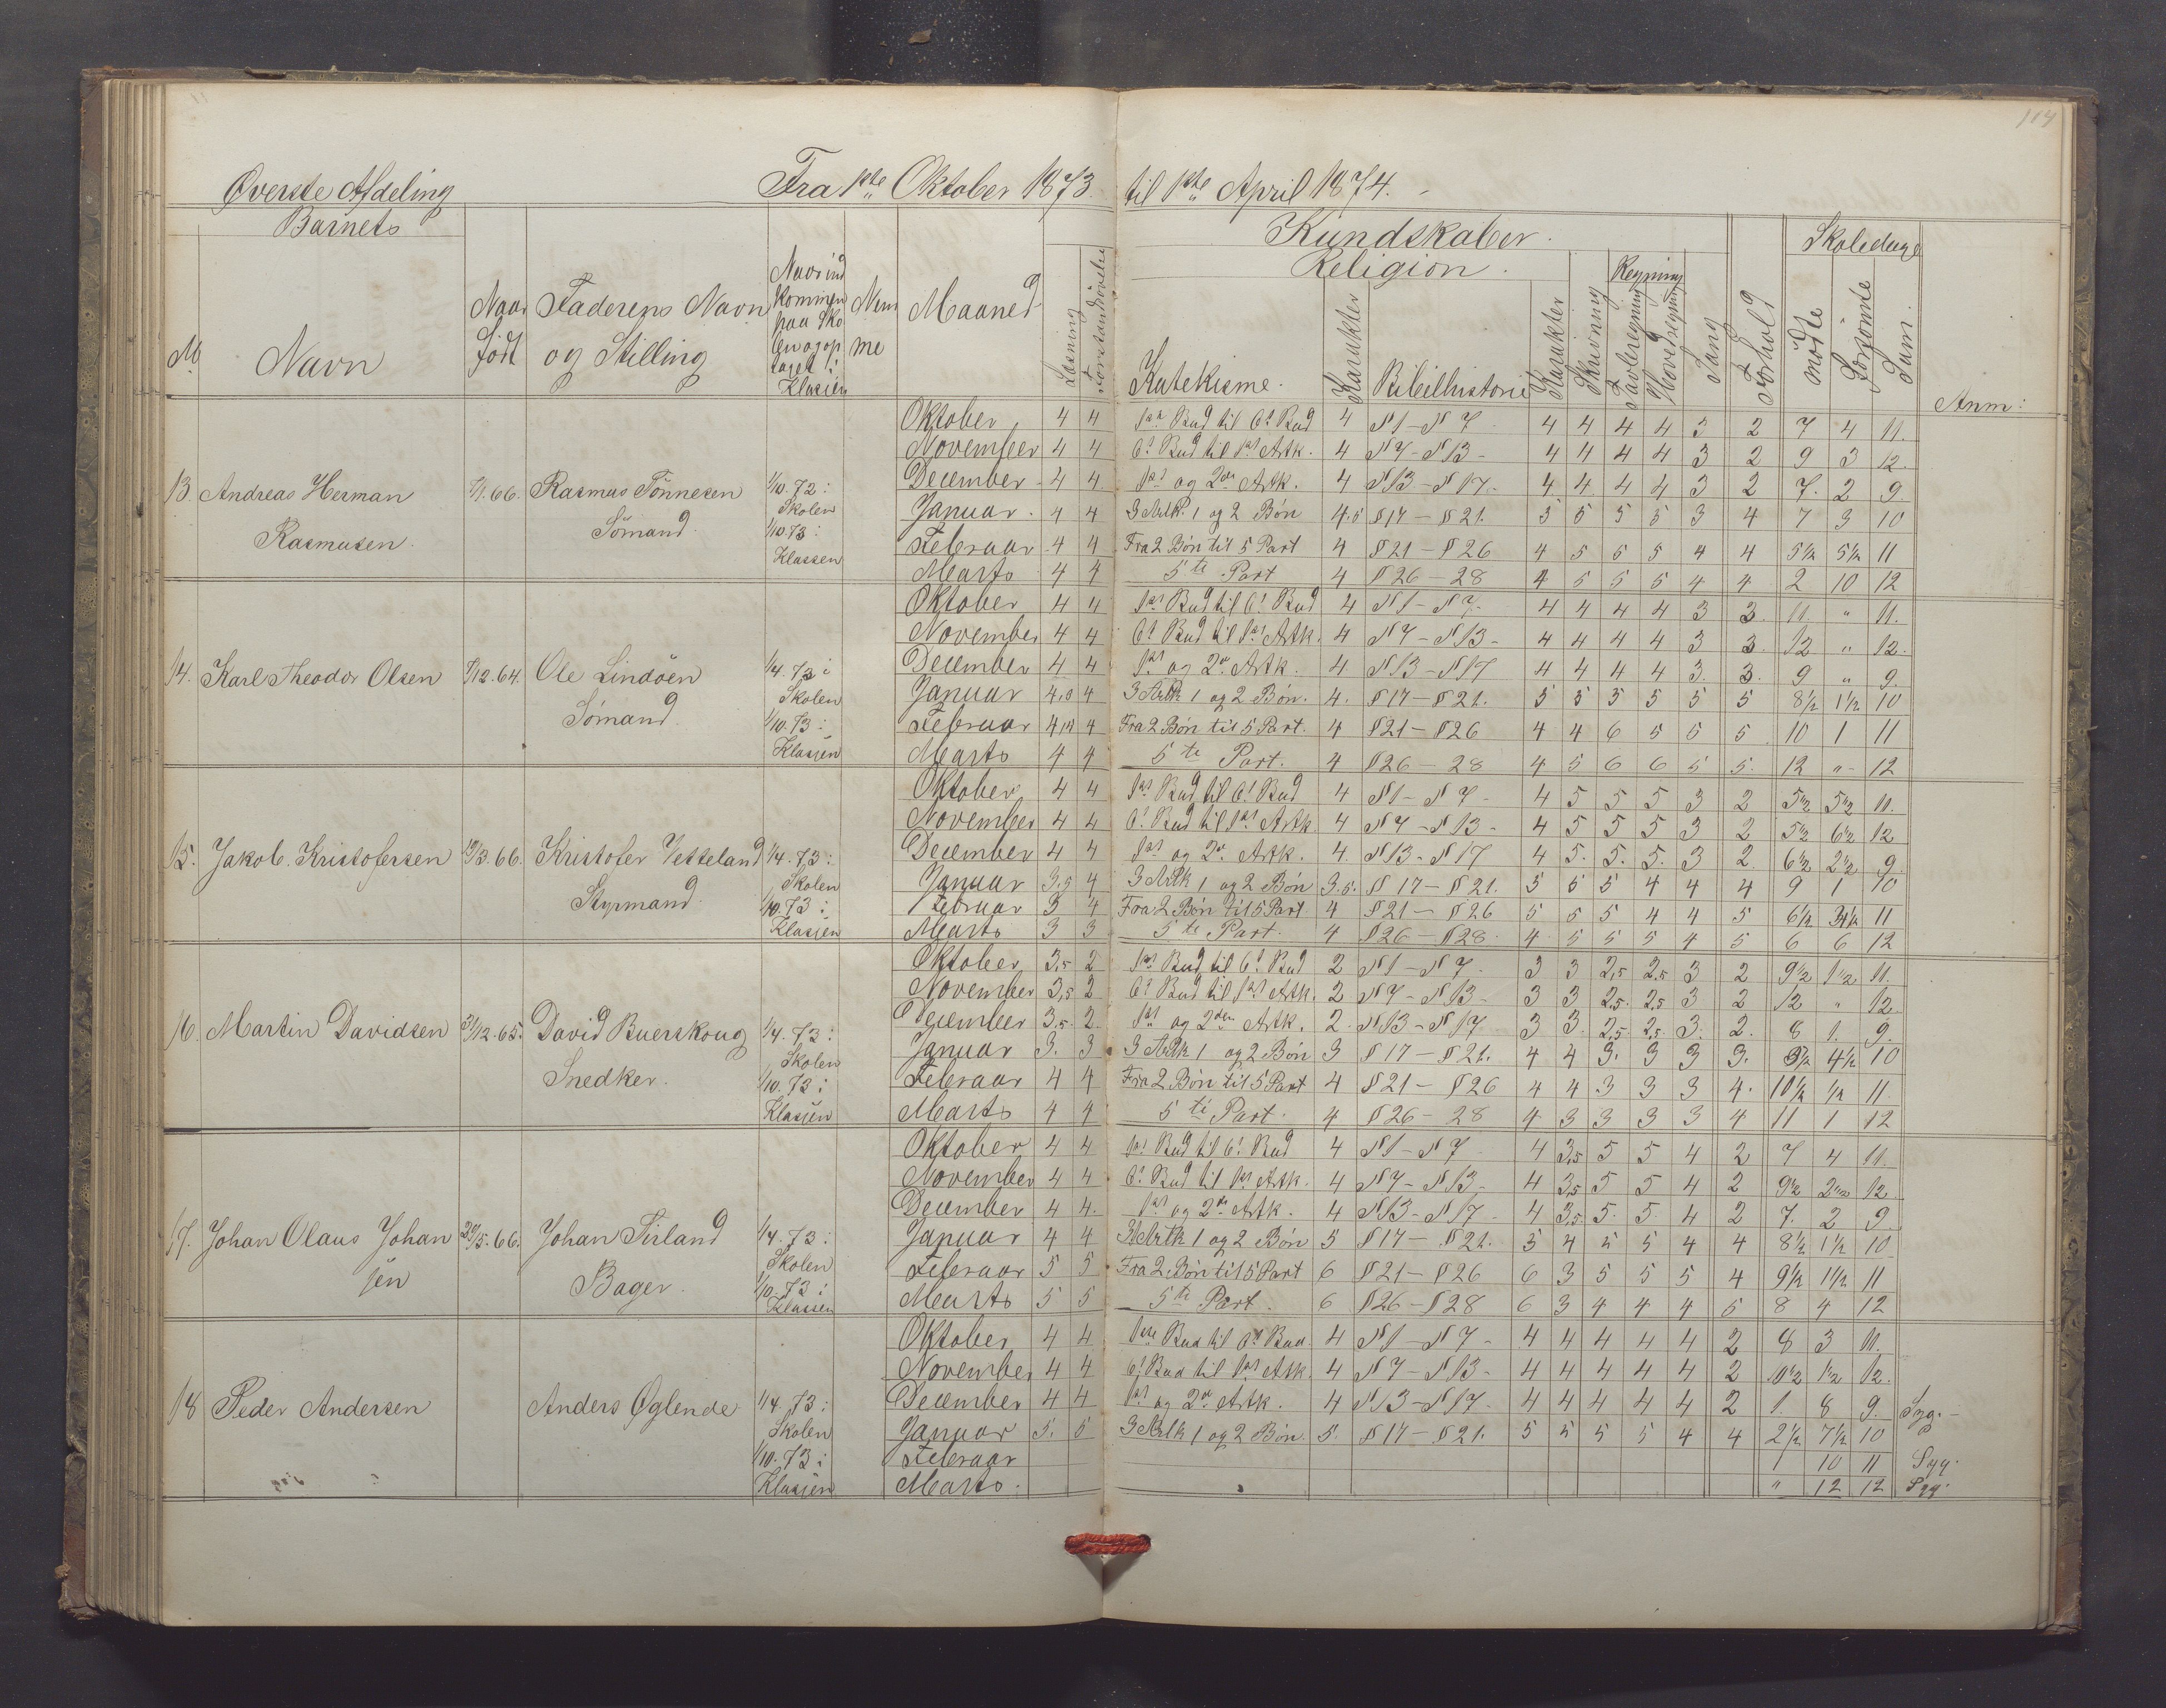 114
Øverste Afdeling Fra 1ste Oktober 1873. til 1ste April 1874.
Barnets Kundskaber. Skoledage
Religion. Regning
№ Navn Naar født Faderens Navn og Stilling Naar ind kommen paa Sko len og op taget i Klassen Nem me Maaned Læsning Forstandsøvelse Katekisme. Karakter Bibelhistorie Karakter Skrivning Tavleregning Hovedregning Sang Forhold mødte Forsømte Sum. Anm:
Oktober 4 4 1ste Bud til 6t Bud 4 №1-№7 4 4 4 4 3 2 7 4 11.
November 4 4 6t Bud til 1ste Artk. 4 №7-№13- 4 4 4 4 3 2 9 3 12.
13. Andreas Herman Rasmus Tönnesen 1/10.72: December 4 4 1ste og 2den Artk. 4 №13-№17. 4 4 4 4 3 2 7. 2 9
Skolen Januar. 4 4 3 Artk. 1 og 2 Bøn 4.5 §17-§21. 5 5 5 5 3 4 7 3 10
Rasmusen. Sömand. 1/10.73: Februar 4 4 Fra 2 Bøn til 5 Part 4 §21-§26 4 5 5 5 4 4 5½ 5½ 11
Klassen Marts 4 4 5te Part 4 §26-28 4 5 5 5 4 4 2 10 12
Oktober 4 4 1ste Bud til 6t Bud 4 №1-№7- 4 4 4 4 3 3. 11. " 11.
November 4 4 6t Bud til 1ste Artk. 4 №7-№13- 4 4 4 4 3 3. 12 " 12.
14. Karl Theodor Olsen Ole Lindöen 1/4.73 i December 4 4 1ste og 2den Artk. 4. №13-№17 4 4 4 4 3. 3. 9 " 9.
Skolen Januar 4,5 4 3 Artk 1 og 2 Bön. 4. §17-§21. 5 5 5 5 5 5 8½ 1½ 10
Sömand 1/10.73: Februar 4 Fra 2 Bøn til 5 Part. 4 §21-§26 4 4 6 5 5 5 10 1 11
Klassen Marts 4 4 5te Part. 4 §26-28 4 5 6 6 5 5. 12 " 12
Oktober 4 4 1ste Bud til 6t Bud 4 №1-№7- 4 5 5 5 3 2 5½ 5½ 11.
November 4 4 6t Bud til 1ste Artk. 4 №7-№13- 4 5 5 5 3 2 5½ 6½ 12
15. Jakob. Kristofersen Kristofer Vetteland 1/4.73: December 4 4 1ste og 2den Artk. 4. №13-№17 4 5. 5. 5. 3 2. 6½ 2½ 9.
Skolen Januar 3.5 4 3 Artk 1 og 2 Bøn 3.5. §17-§21. 5 5 5 4 4 4 9 1 10
Styrmand. 1/10.73: Februar 3 4 Fra 2 Bøn til 5 Part. 4 §21-§26 5 5 5 4 4 5 6½ 11
Klassen Marts 3 3 5te Part. 4 §26-§28. 4 5 5 5 4 5 6 6 12
Oktober 3,5 2 1ste Bud til 6t Bud 2 №1-№7- 3 3 2,5 2,5 3 2 9½ 1½ 11.
November 3,5 2 6t Bud til 1ste Artk. 2 №7-№13- 3 3 2,5. 2,5 3 2 12 " 12.
16. Martin Davidsen 31/12.65. David Buerskoug 1/4.73: December 3,5. 2. 1ste og 2den Artk. 2. №13-№17 3 3. 2,5. 2,5. 3. 2. 8 1. 9.
Skolen Januar 3. 3 3 Artk 1 og 2 Bøn 3 §17-§21. 4 4 3. 3 3 3. 4½ 10
Snedker. 1/10.73: Februar 4 4 Fra 2 Bøn til 5 Part 4 §21-§26 4 4 3 3 3 4. 10½ ½ 11.
Klassen Marts 4 4 5te Part. 4 §26-28 4 3 3 3 3 4 11 1 12
Oktober 4 4 1ste Bud til 6t Bud 4 №1-№7- 4 3,5 5 5 4 2 7 4 11.
November 4 4 6t Bud til 1ste Artk. 4 №7-№13- 4 3,5 5 5 4 2 9½ 2½ 12.
December 4 4. 1ste og 2den Artk. 4 №13-№17- 4 3,5. 5. 5. 4 2 7. 2 9.
17. Johan Olaus Johan 29/5.66. Johan Tirland 1/4.73: Januar 4 4 3 Artk 1 og 2 Bøn 5 §17-§21. 5 4 5 5 4 4 8½ 1½ 10
sen Bager. Skolen Februar 5 5 Fra 2 Bøn til 5 Part 6 §21-§26 6 3 5 5 5 4 9½ 1½ 11
1/10.73 i Klassen Marts 5 5 5te Part. 6 §26-§28 6 3 4 4 4 5 8 4 12
Oktober 4 4 1ste Bud til 6t Bud. 4 №1-№7- 4 4 4 4 4 2 8 3 11.
November 4 4 6t Bud til 1ste Artk. 4 №7-№13- 4 4 4 4 4 2 10½ 1½ 12.
18 Peder Andersen Anders Øglende 1/4.73: December 4 4 1ste og 2den Artk. 4 №13-№17- 4 4 4 4 4 2 1. 8 9. Syg.-
Skolen Januar 5. 5 3 Artk 1 og 2 Bøn. 5. §17-§21. 5 5 5 5 4 4 2½ 7½ 10
1/10.73 i Februar 1 10 11 Syg.
Klassen Marts. " 12 12 Syg.